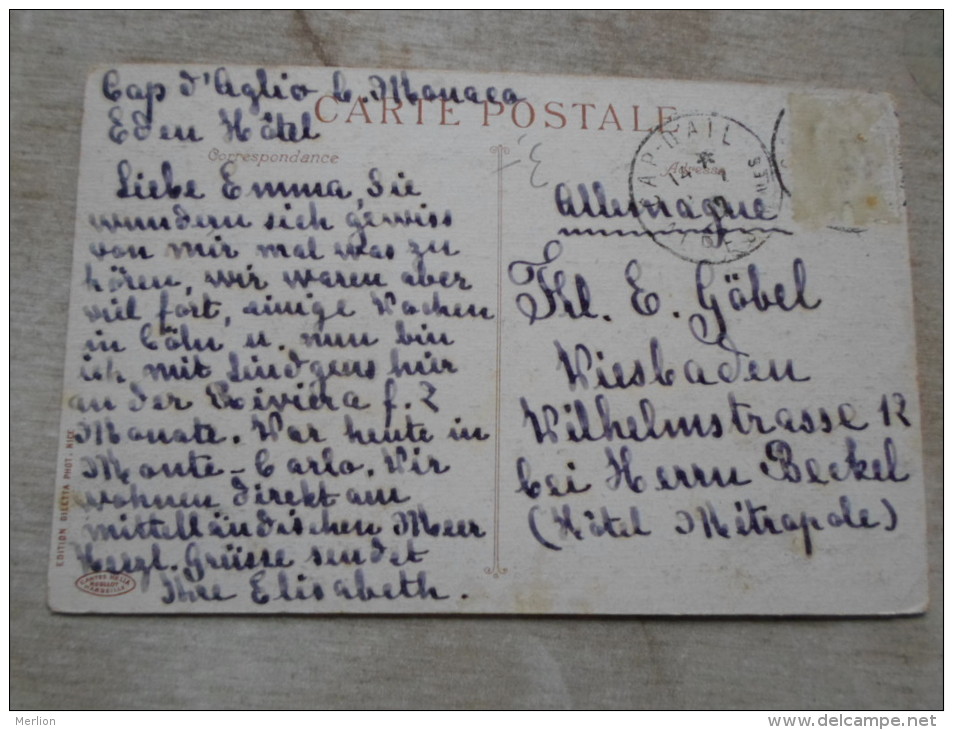 Cap d'Aglio b. Monaco
Eden Hôtel
CARTE POSTALE
Correspondance
Adresse
Liebe Emma, Sie
wundern sich gewiss
von mir mal was zu
hören, wir waren aber
viel fort, einige Wochen
in Cöln u. nun bin
ich mit Lindgens hier
an der Riviera f. 2
Monate. War heute in
Monte-Carlo. Wir
wohnen direkt am
mittelländischen Meer
Herzl. Grüsse sendet
Ihre Elisabeth.
Allemagne
Frl. E. Göbel
Wiesbaden
Wilhelmstrasse 12
bei Herrn Beckel
(Hôtel Métropole)
CAP-D'AIL
14
EDITION GILETTA PHOT. NICE
MARSEILLE
Merlion
www.delcampe.net